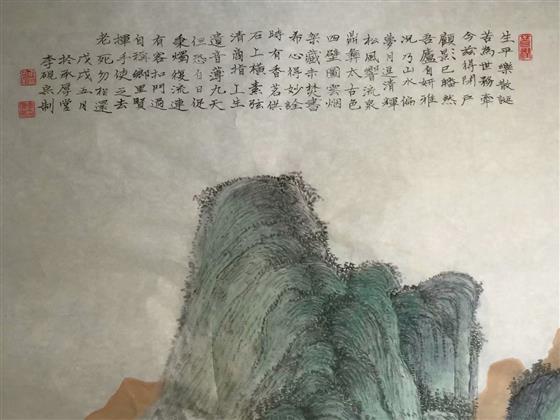 生平樂散誕
苦為世務牽
今茲得閉戶
顧影已皤然
吾廬自妍雅
況乃山水偏
月逗清輝
松風響流泉
鼎彝太古色
四壁圖雲烟
架藏未焚書
希心得妙詮
時有香茗供
石上橫素弦
清商指上生
遺音薄九天
但恐白日促
秉燭復流連
有客扣門過
自稱鄉里賢
揮手使之去
老死勿相還
戊戌五月
於承厚堂
李硯制